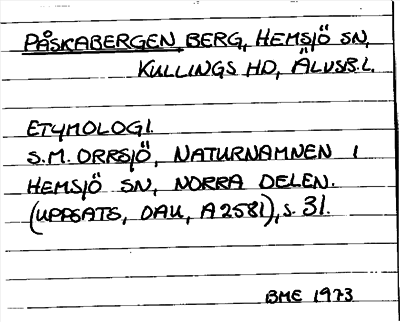 PÅSKABERGEN, BERG, HEMSJÖ SN,
KULLINGS HD, ÄLVSB.L.
ETYMOLOGI.
S.M. ORRSJÖ, NATURNAMNEN I
HEMSJÖ SN, NORRA DELEN.
(UPPSATS, DAU, A2581), S. 31.
BME 1973